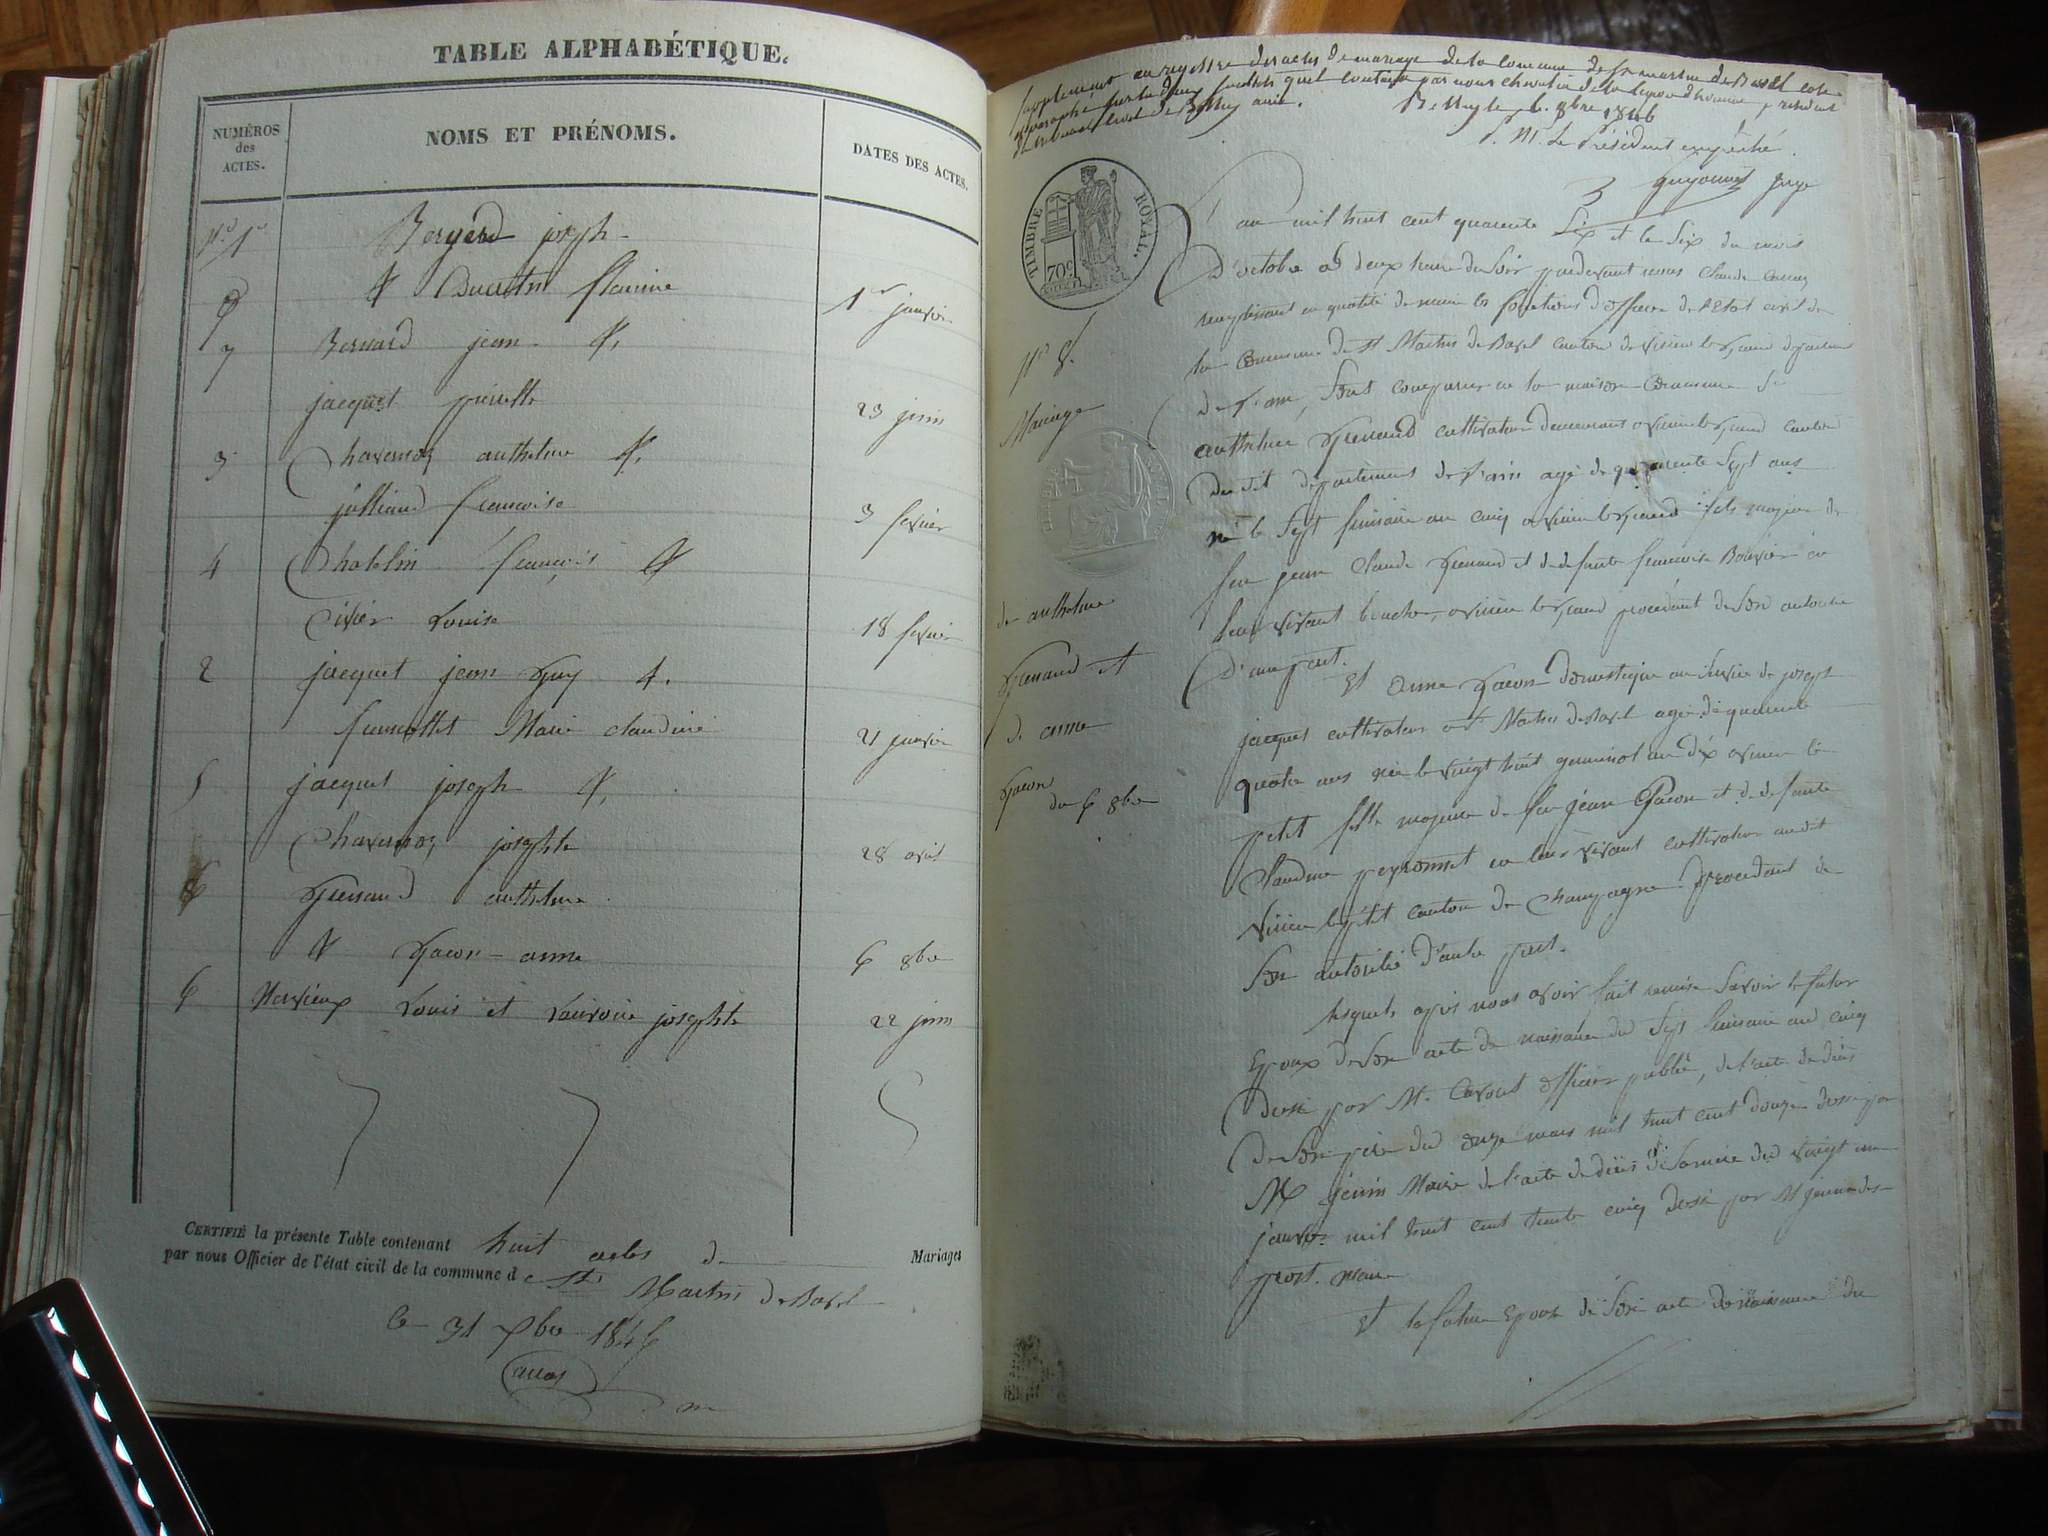 TABLE ALPHABÉTIQUE.
NUMÉROS des ACTES.
NOMS ET PRÉNOMS.
DATES DES ACTES.
joseph
1er janvier
7 Bernard jean &.
jacquet pierrette 23 juin
3 Chavernoz anthelme &.
julliand francoise 3 fevrier
4 Chatelin francois &
Civier Louise 18 fevrier
2 jacquet jean Guy &.
Marie claudine 21 janvier
5 jacquet joseph &.
Chavernoz josephte 28 avril
Grenand anthelme
& Gacon anne 6 8bre
6 Mervieux Louis et josephte 22 juin
CERTIFIÉ la présente Table contenant huit actes de Mariages
par nous Officier de l'état civil de la commune de St Martin de Bavel
Ce 31 Xbre 1846
supplement au registre des actes de mariage de la commune de St martin de Bavel
par nous chevalier de la Legion d'honneur, president
Belley le 8bre 1846
P. M. Le Président empêché.
juge
TIMBRE ROYAL.
70c
No 8.
Mariage
de anthelme
Grenand et
de anne
Gacon
du 6 8bre
L'an mil huit cent quarente Six et le Six du mois
d'octobre à deux heure du Soir pardevant nous Claude
remplissant en qualité de maire les fonctions d'officier de l'Etat civil de
la Commune de St Martin de Bavel canton de virieu le grand departement
de l'ain, Sont comparus en la maison Commune Sr
anthelme Grenand cultivateur demeurant a virieu le grand canton
dudit departement de l'ain agé de quarente Sept ans
né le Sept frimaire an cinq a virieu le grand fils majeur de
feu jean Claude Grenand et de defunte francoise Bouvier en
leur vivant a virieu le grand procedant de Son autorité
d'une part.
Et Anne Gacon domestique au Service de joseph
jacquet cultivateur a St Martin de Bavel agée de quarente
quatre ans née le vingt huit germinal an dix a virieu le
petit fille majeure de feu jean Gacon et de defunte
Claudine peyronnet en leur vivant cultivateur audit
virieu le petit canton de Champagne procedant de
Son autorité d'autre part.
Lesquels après nous avoir fait remise Savoir le futur
Epoux de Son acte de naissance du Sept frimaire an cinq
dressé par M. officier public, de l'acte de décès
de Son père du onze mars mil huit cent douze dressé par
M. Maire de l'acte de décès de Sa mère du vingt un
janvier mil huit cent trente cinq dressé par M
maire
Et la future Epouse de Son acte de naissance du